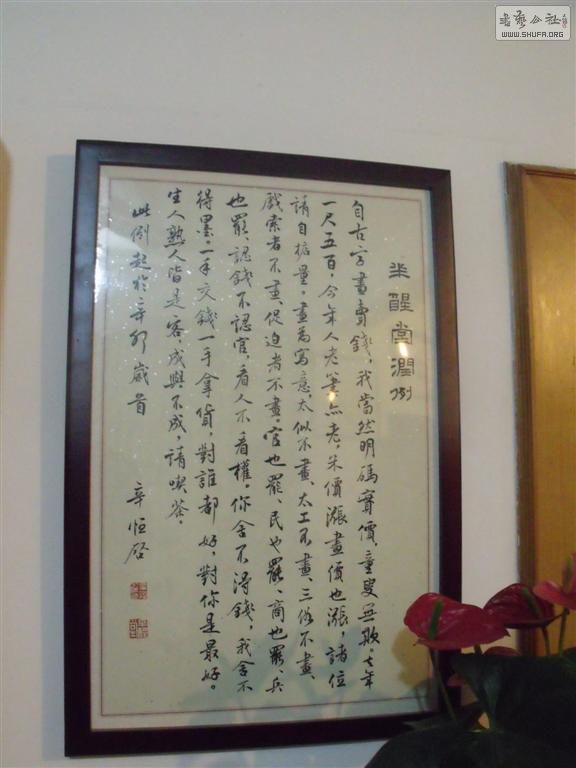 半醒堂潤例
自古字書賣錢，我當然明碼實價，童叟無欺。七年
一尺五百，今年人老筆亦老，米價漲畫價也漲，諸位
請自掂量。畫為寫意，太似不畫、太工不畫、三俗不畫、
戲索者不畫、促迫者不畫。官也罷、民也罷、商也罷、兵
也罷、認錢不認官，看人不看權。你舍不得錢，我舍不
得墨。一手交錢一手拿貨，對誰都好，對你是最好。
生人熟人皆是客，成與不成，請喫茶。
此例起於辛卯歲首
辛恒啓
書艺公社
WWW.SHUFA.ORG